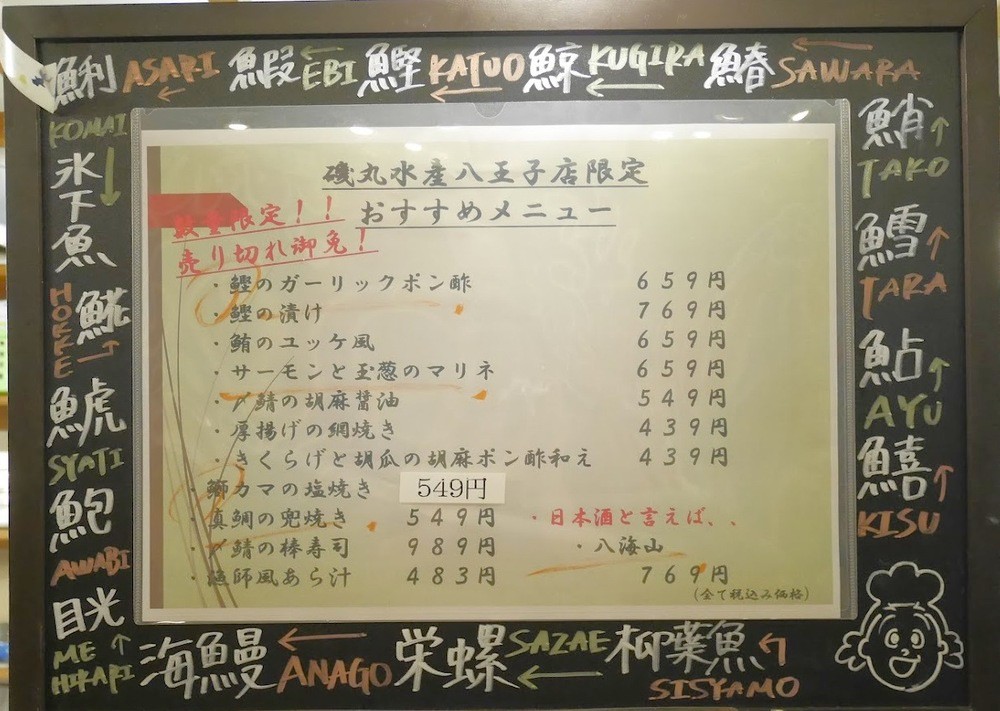 鯏 ASARI 鰕 EBI 鰹 KATUO 鯨 KUGIRA 鰆 SAWARA
KOMAI
氷下魚
HOKKE
𩸽
鯱
SYATI
鮑
AWABI
目光
ME
HIKARI
磯丸水産八王子店限定
おすすめメニュー
数量限定!!
売り切れ御免!
・鰹のガーリックポン酢 659円
・鰹の漬け 769円
・鮪のユッケ風 659円
・サーモンと玉葱のマリネ 659円
・〆鯖の胡麻醤油 549円
・厚揚げの網焼き 439円
・きくらげと胡瓜の胡麻ポン酢和え 439円
・鰤カマの塩焼き 549円
・真鯛の兜焼き 549円
・〆鯖の棒寿司 989円
・漁師風あら汁 483円
・日本酒と言えば、、
・八海山
769円
(全て税込み価格)
鮹
TAKO
鱈
TARA
鮎
AYU
鱚
KISU
海鰻 ANAGO 栄螺 SAZAE 柳葉魚
SISYAMO